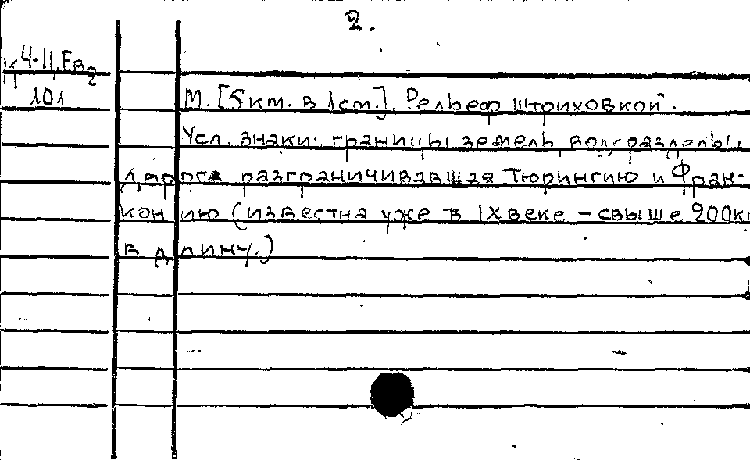 2.
К 4-11.Ев2
101
М. [5км. в 1см.]. Рельеф штриховкой.
Усл. знаки: границы земель, водоразделы,
дорога разграничивавшая Тюрингию и Фран-
конию (известна уже в IX веке – свыше 200км
в длину.)